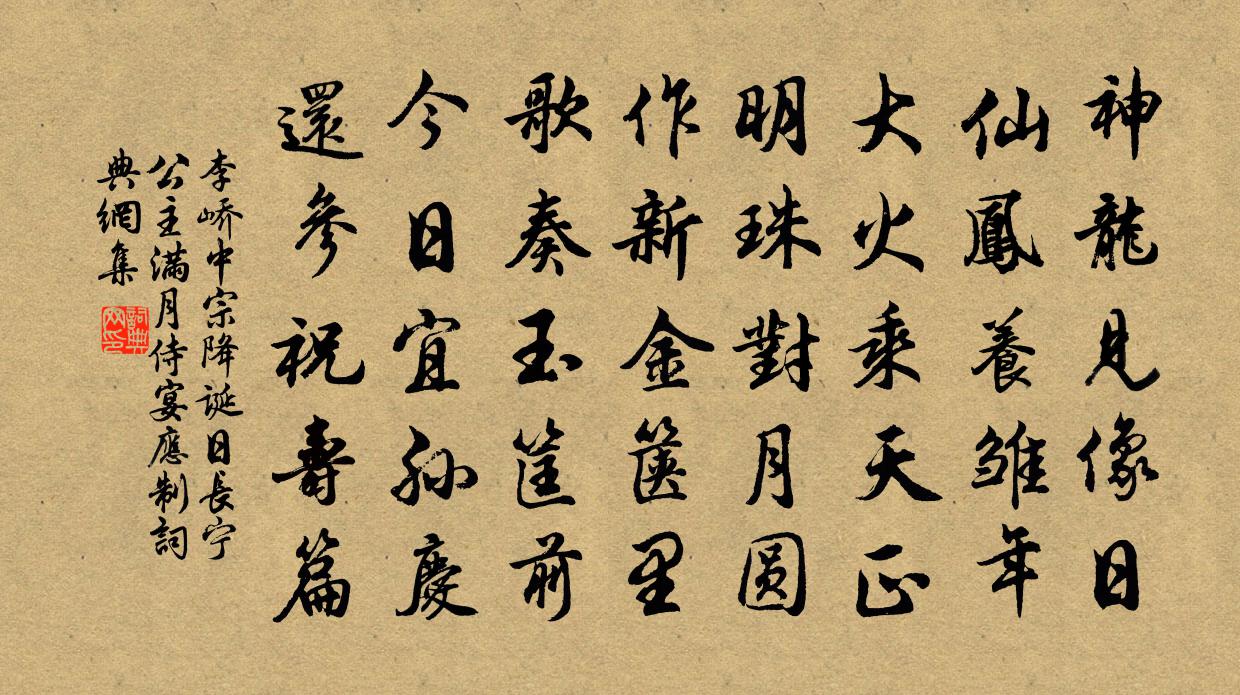 神龍見像日
仙鳳養雛年
大火乘天正
明珠對月圆
作新金篋里
歌奏玉筐前
今日宜孙慶
還參祝壽篇
李嶠中宗降誕日長宁
公主满月侍宴應制詞
典網集
詞典
网印